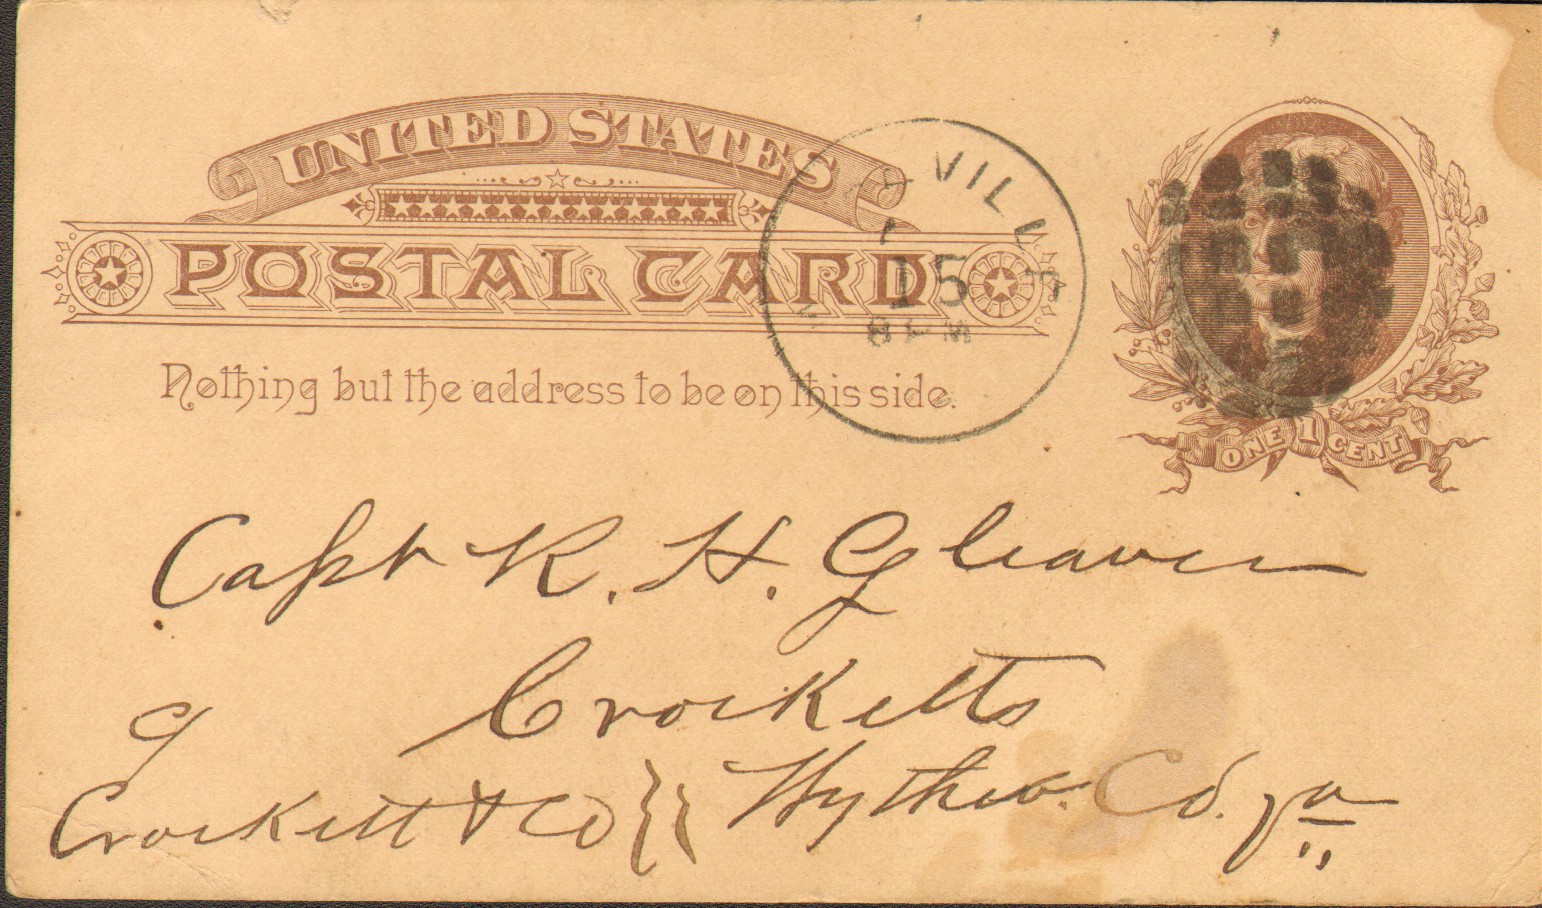 UNITED STATES
POSTAL CARD
Nothing but the address to be on this side.
VILL
15
8 AM
ONE 1 CENT
Capt R. H. Gleaves
Crocketts
Crockett & Co Wythe Co. Va